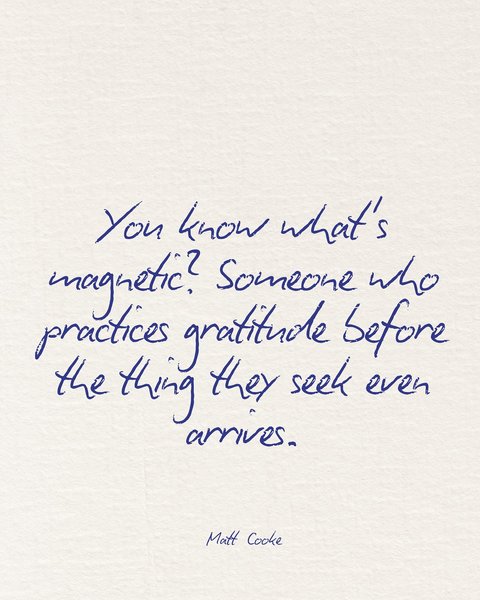 You know what's
magnetic? Someone who
practices gratitude before
the thing they seek even
arrives.
Matt Cooke